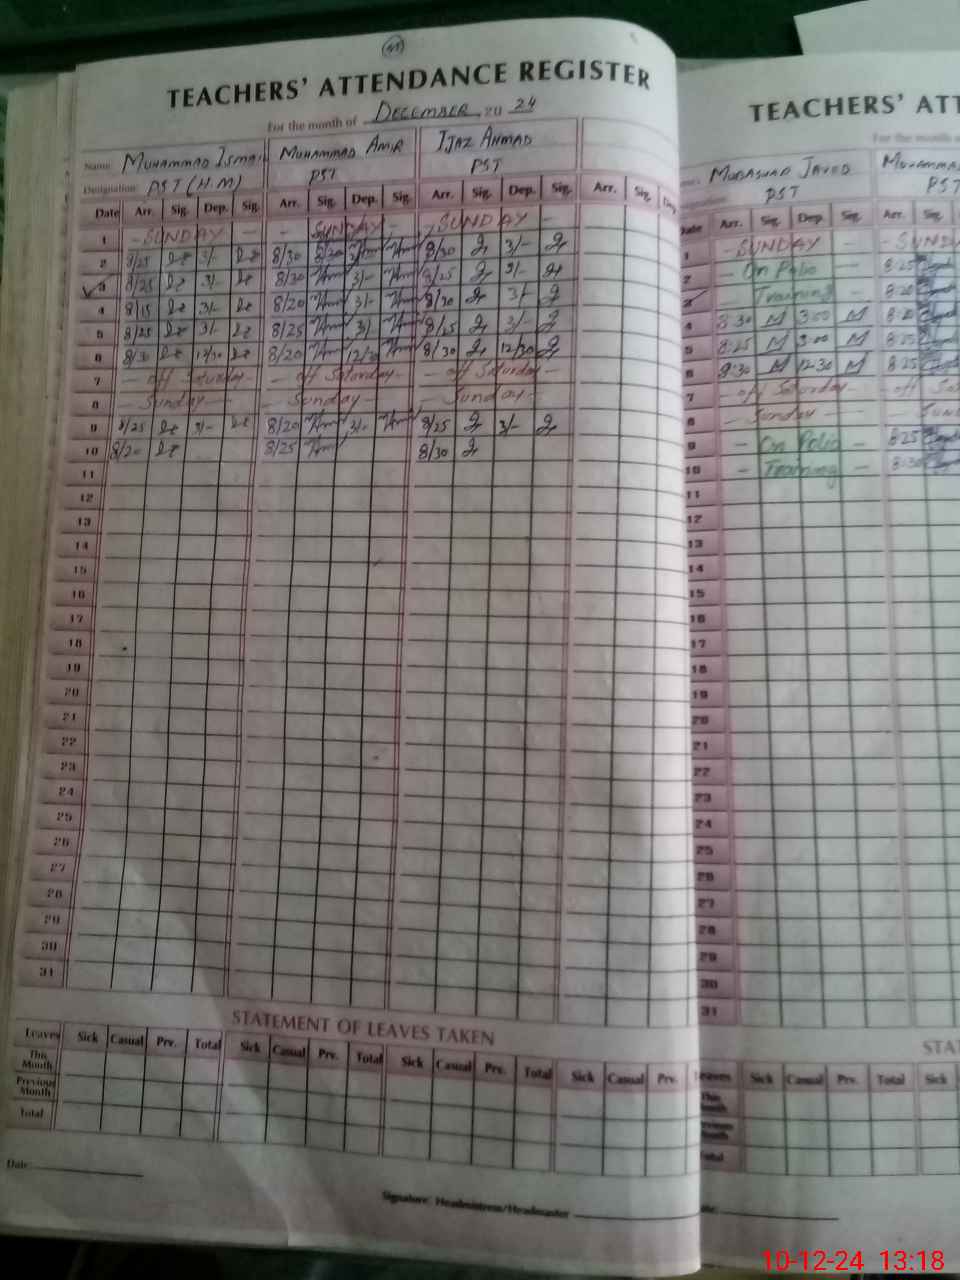 TEACHERS' ATTENDANCE REGISTER
For the month of DECEMBER, 20 24
Name: MUHAMMAD ISMAI MUHAMMAD AMIR IJAZ AHMAD
Designation: PST (H.M) PST PST
Date Arr. Sig. Dep. Sig. Arr. Sig. Dep. Sig. Arr. Sig. Dep. Sig. Arr. Sig. Dep
1 - SUNDAY - - SUNDAY - - SUNDAY -
2 8/25 3/- 8/30 8/30 3/-
3 8/25 3/- 8/30 3/- 8/25 3/-
4 8/15 3/- 8/20 3/- 8/30 3/-
5 8/25 3/- 8/25 3/ 8/25 3/-
6 8/30 12/30 8/20 12/30 8/30 12/30
7 - off Saturday - - off Saturday - - off Saturday -
8 - Sunday - - Sunday - - Sunday -
9 8/25 3/- 8/20 3/- 8/25 3/-
10 8/20 8/25 8/30
11
12
13
14
15
16
17
18
19
20
21
22
23
24
25
26
27
28
29
30
31
STATEMENT OF LEAVES TAKEN
Leaves Sick Casual Prv. Total Sick Casual Prv. Total Sick Casual Prv. Total Sick Casual Prv.
This Month
Previous Month
Total
Date:
Signature: Headmistress/Headmaster
TEACHERS' ATT
For the month
MUDASSAR JAVED MUHAMMA
PST PST
Date Arr. Sig. Dep. Sig. Arr. Sig.
1 - SUNDAY - - SUND
2 - On Polio - 8:25
3 - Training - 8:20
4 8:30 M 3:00 M 8:20
5 8:25 M 3:00 M 8:25
6 8:30 M 12:30 M 8:25
7 - off Saturday - - off Sa
8 - Sunday - - Sun
9 - On Polio 8:25
10 - Training - 8:30
11
12
13
14
15
16
17
18
19
20
21
22
23
24
25
26
27
28
29
30
31
STA
Leaves Sick Casual Prv. Total Sick
This Month
Previous Month
Total
Date:
10-12-24 13:18